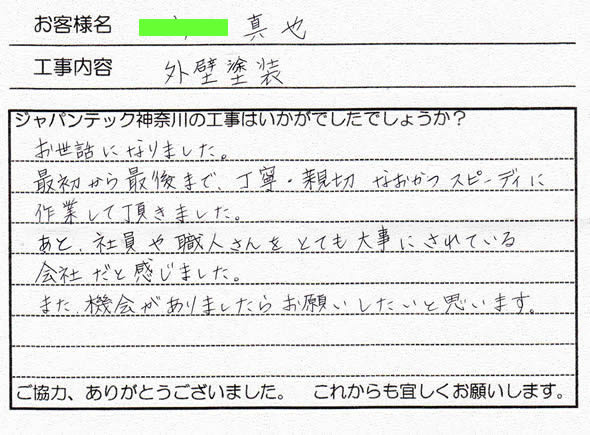 お客様名 真也
工事内容 外壁塗装
ジャパンテック神奈川の工事はいかがでしたでしょうか？
お世話になりました。
最初から最後まで、丁寧・親切 なおかつ スピーディに
作業して頂きました。
あと、社員や職人さんを とても大事にされている
会社だと感じました。
また、機会がありましたらお願いしたいと思います。
ご協力、ありがとうございました。 これからも宜しくお願いします。